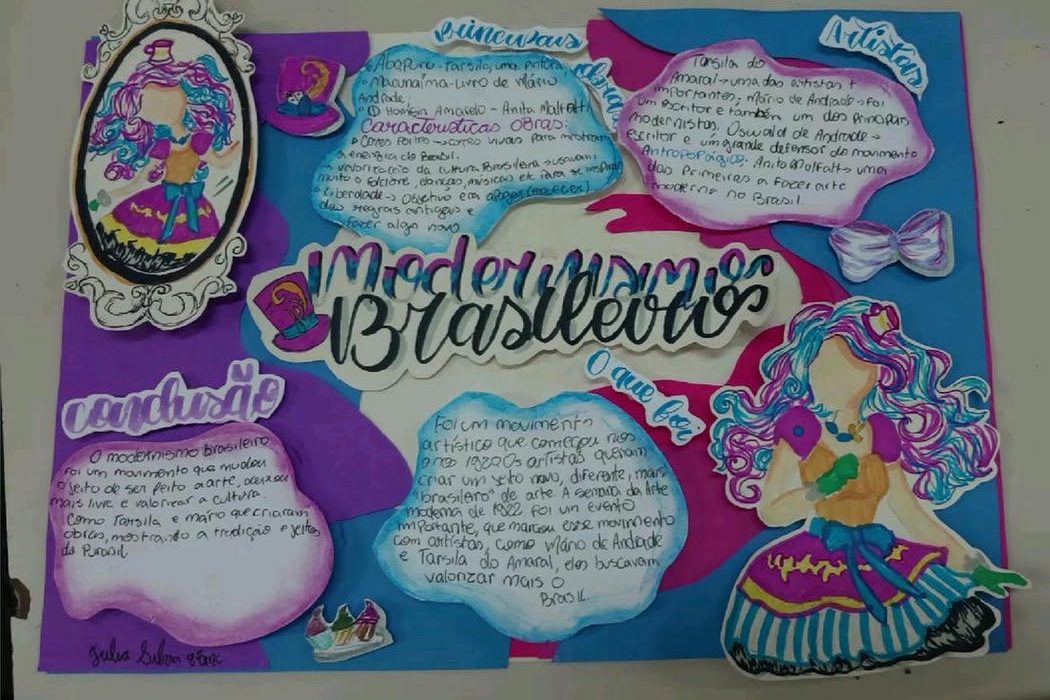 Modernismo
Brasileiro
Principais
obras
• Abapuru - Tarsila, uma pintora
• Macunaíma - Livro de Mário
Andrade.
• O Homem Amarelo - Anita Malfatti
Características Obras:
• Cores fortes → cores vivas para mostrar
a energia do Brasil.
valorização da cultura Brasileira → usavam
muito o folclore, danças, músicas etc para se inspirar
• Liberdade → Objetivo era apagar (esquecer)
das regras antigas e
fazer algo novo
Artistas
Tarsila do
Amaral → uma das artistas +
importantes; Mário de Andrade → Foi
um escritor e também um dos principais
modernistas. Oswald de Andrade →
escritor e um grande defensor do movimento
Antropofágico. Anita Malfatti → uma
das Primeiras a Fazer arte
moderna no Brasil.
O que foi
Foi um movimento
artístico que começou nos
ano 1920. Os artistas queriam
criar um jeito novo, diferente, mais
"brasileiro" de arte. A semana da Arte
moderna de 1922 foi um evento
importante, que marcou esse movimento
com artistas, como Mário de Andrade
e Tarsila do Amaral, eles buscavam
valorizar mais o
Brasil.
conclusão
O modernismo brasileiro
foi um movimento que mudou
o jeito de ser feito a arte, deixou
mais livre e valorizar a cultura.
Como Tarsila e mário que criaram
obras, mostrando a tradição e jeitos
do Brasil.
Julia Silva